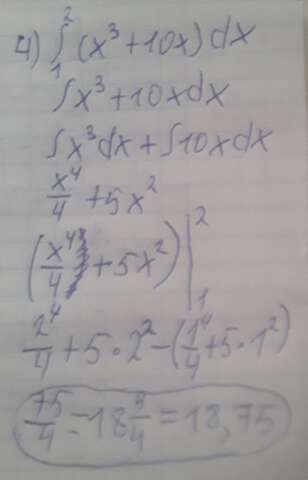 4) ∫₁² (x³+10x)dx
∫x³+10xdx
∫x³dx+∫10xdx
x⁴/4 +5x²
(x⁴/4 +5x²)|₁²
2⁴/4 +5·2²-(1⁴/4+5·1²)
75/4 = 18 3/4 = 18,75